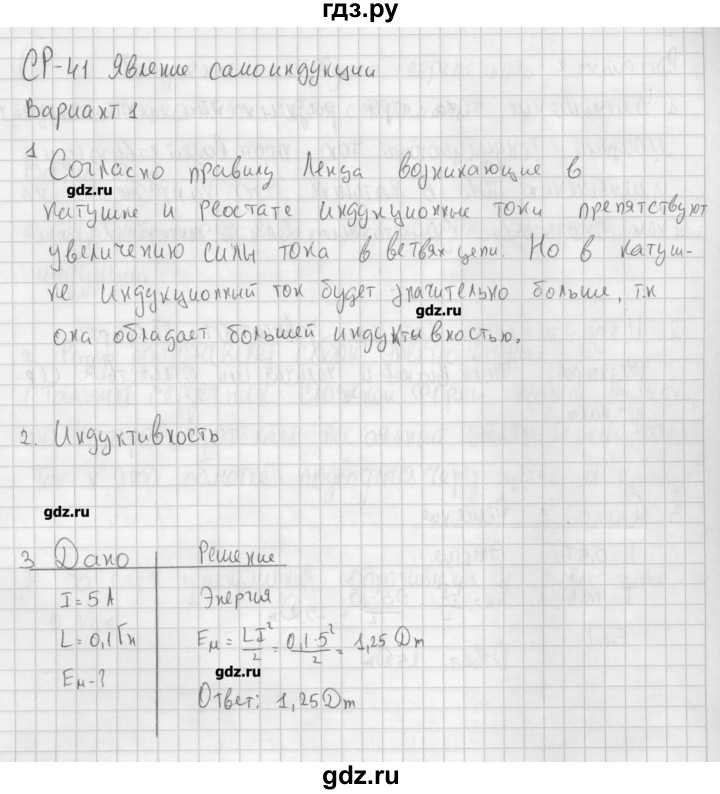 гдз.ру
СР-41 Явление самоиндукции
Вариант 1
1 Согласно правилу Ленца возникающие в
gdz.ru
катушке и реостате индукционные токи препятствуют
увеличению силы тока в ветвях цепи. Но в катуш-
ке индукционный ток будет значительно больше, т.к
gdz.ru
она обладает большей индуктивностью.
2. Индуктивность
gdz.ru
3 Дано Решение
I = 5 А Энергия
L = 0,1 Гн Eм = LI²/2 = 0,1·5²/2 = 1,25 Dm
Eм - ? gdz.ru
Ответ: 1,25 Dm
gdz.ru